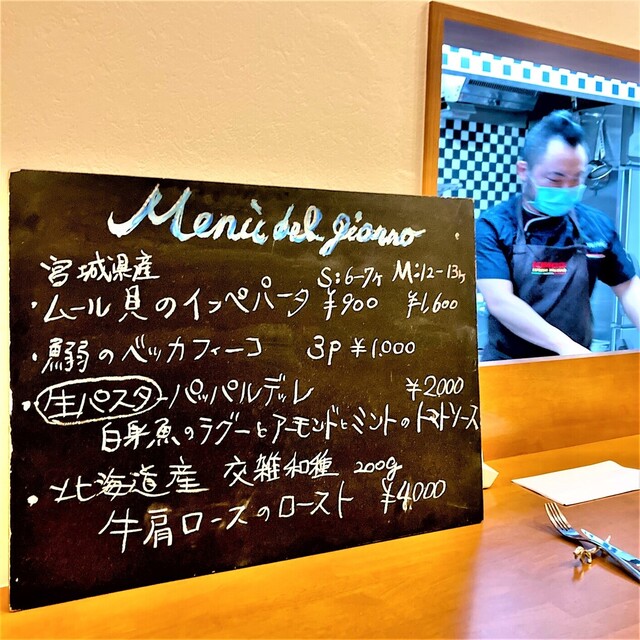 Menù del giorno
宮城県産 S:6-7ヶ M:12-13ヶ
・ムール貝のインペパータ ¥900 ¥1,600
・鰯のベッカフィーコ 3P ¥1.000
・生パスタ パッパルデッレ ¥2000
白身魚のラグーとアーモンドとミントのトマトソース
・北海道産 交雑和種 200g
牛肩ロースのロースト ¥4,000